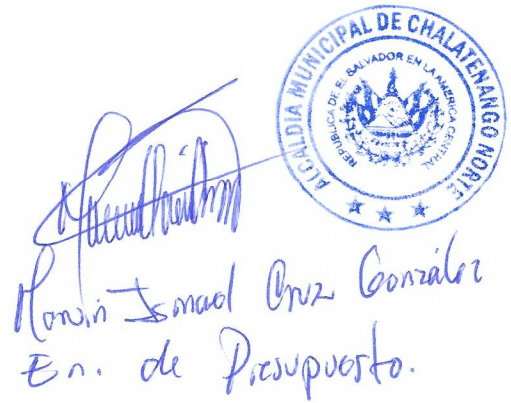 ALCALDIA MUNICIPAL DE CHALATENANGO NORTE
REPUBLICA DE EL SALVADOR EN LA AMERICA CENTRAL
Marvin Ismael Cruz González
En. de Presupuesto.